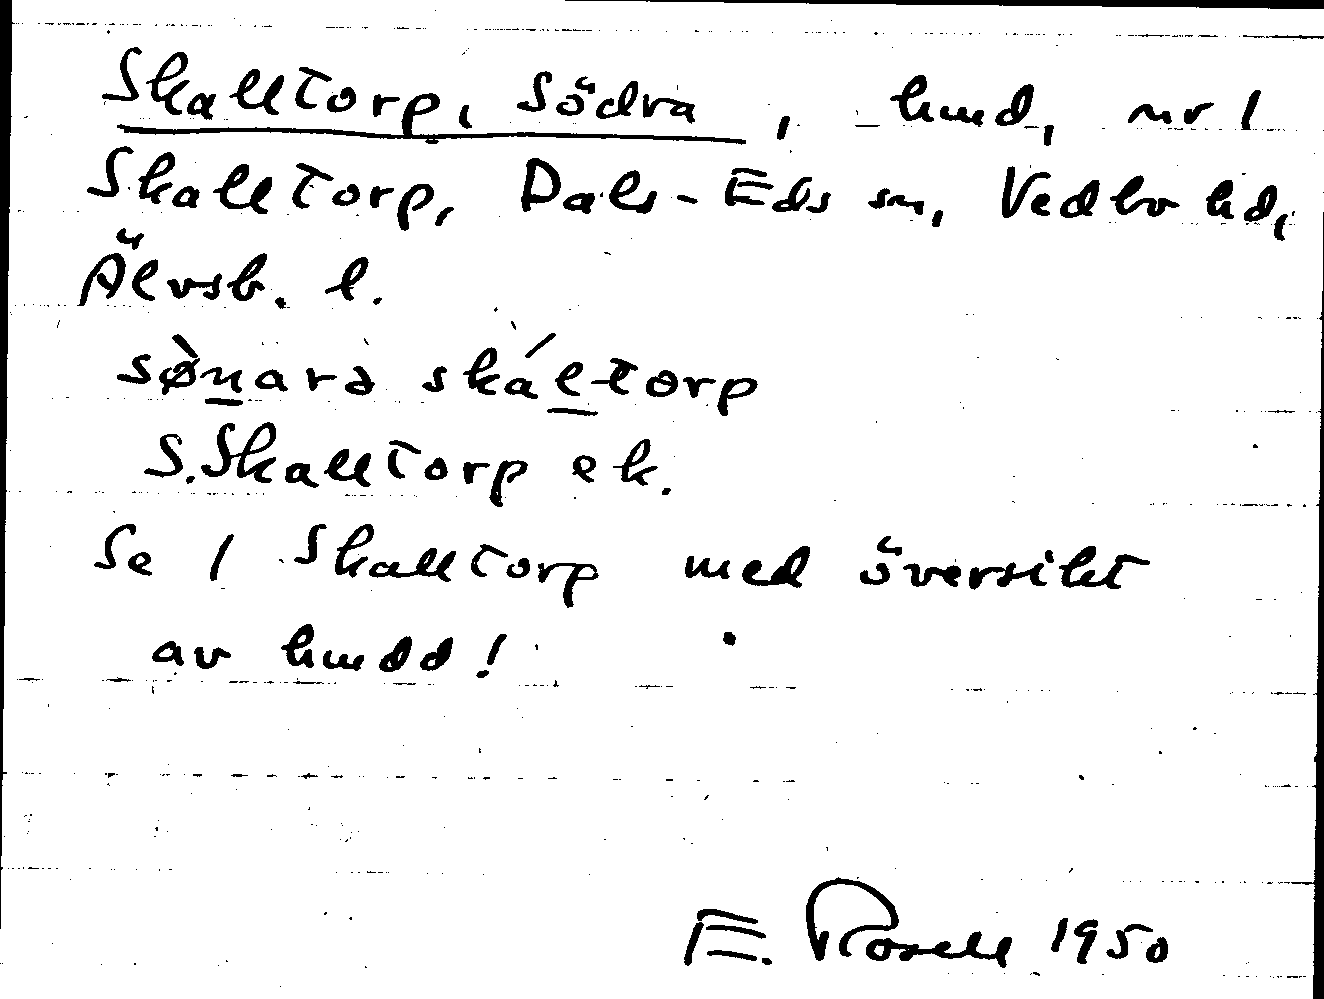 Skalltorp, Södra, hmd, nr 1
Skalltorp, Dals-Eds sn, Vedbo hd,
Älvsb. l.
sø̀narə skáltorp
S. Skalltorp ek.
Se 1 Skalltorp med översikt
av hmdd!
E. Rosell 1950